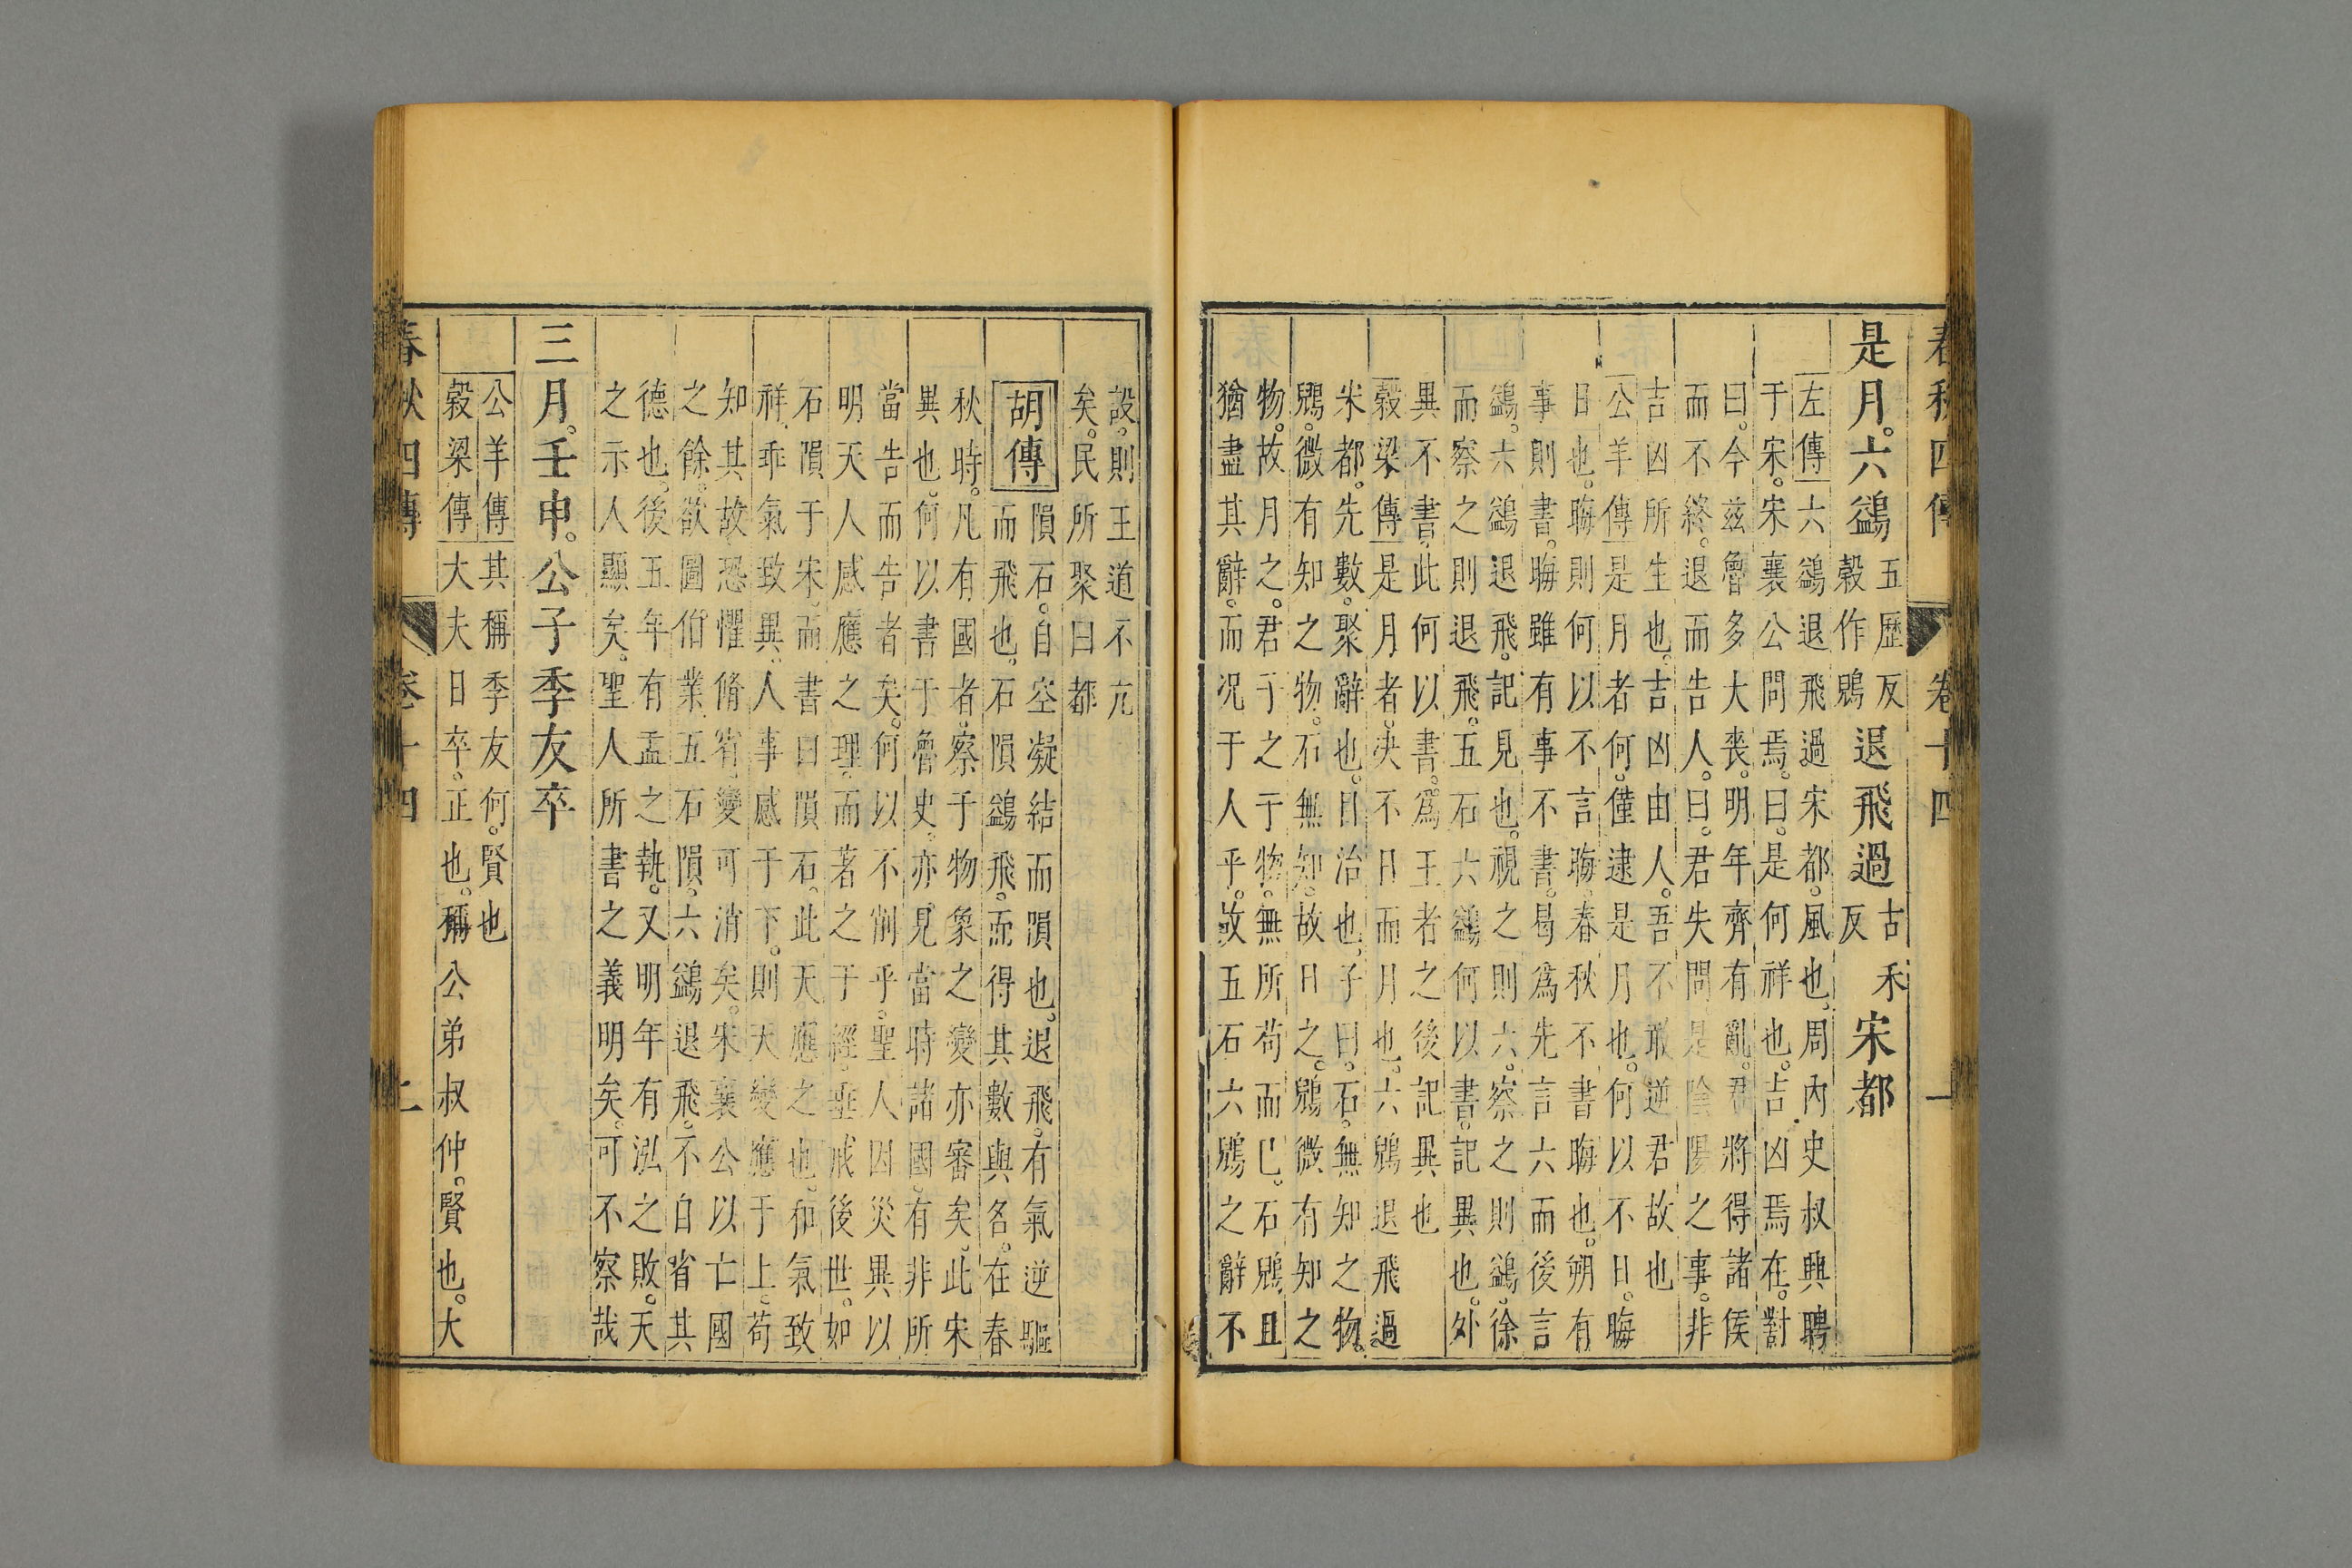 春秋四傳 卷十四 一
是月。六鷁 五歷反 榖作鶂 退飛過 古禾反 宋都
左傳 六鷁退飛過宋都。風也。周內史叔興聘
于宋。宋襄公問焉。曰。是何祥也。吉凶焉在。對
曰。今兹魯多大喪。明年齊有亂。君將得諸侯
而不終。退而告人。曰。君失問。是陰陽之事。非
吉凶所生也。吉凶由人。吾不敢逆君故也
公羊傳 是月者何。僅逮是月也。何以不日。晦
日也。晦則何以不言晦。春秋不書晦也。朔有
事則書。晦雖有事不書。曷爲先言六而後言
鷁。六鷁退飛。記見也。視之則六。察之則鷁。徐
而察之則退飛。五石六鷁何以書。記異也。外
異不書。此何以書。爲王者之後記異也
榖梁傳 是月者。决不日而月也。六鶂退飛過
宋都。先數。聚辭也。目治也。子曰。石。無知之物。
鶂。微有知之物。石無知。故日之。鶂微有知之
物。故月之。君子之于物。無所苟而已。石鶂且
猶盡其辭。而况于人乎。故五石六鶂之辭不
設。則王道不亢
矣。民所聚曰都
胡傳 隕石。自空凝結而隕也。退飛。有氣逆驅
而飛也。石隕鷁飛。而得其數與名。在春
秋時。凡有國者。察于物象之變亦審矣。此宋
異也。何以書于魯史。亦見當時諸國。有非所
當告而告者矣。何以不削乎。聖人因災異以
明天人感應之理。而著之于經。垂戒後世。如
石隕于宋。而書曰隕石。此天應之也。和氣致
祥。乖氣致異。人事感于下。則天變應于上。苟
知其故。恐懼脩省。變可消矣。宋襄公以亡國
之餘。欲圖伯業。五石隕。六鷁退飛。不自省其
德也。後五年有盂之執。又明年有泓之敗。天
之示人顯矣。聖人所書之義明矣。可不察哉
三月。壬申。公子季友卒
公羊傳 其稱季友何。賢也
榖梁傳 大夫日卒。正也。稱公弟叔仲。賢也。大
春秋四傳 卷十四